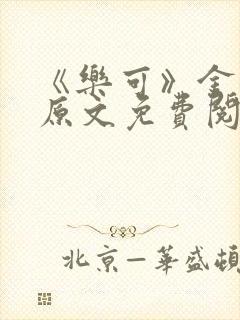 《樂可》金
原文免費閱
北京—華盛頓